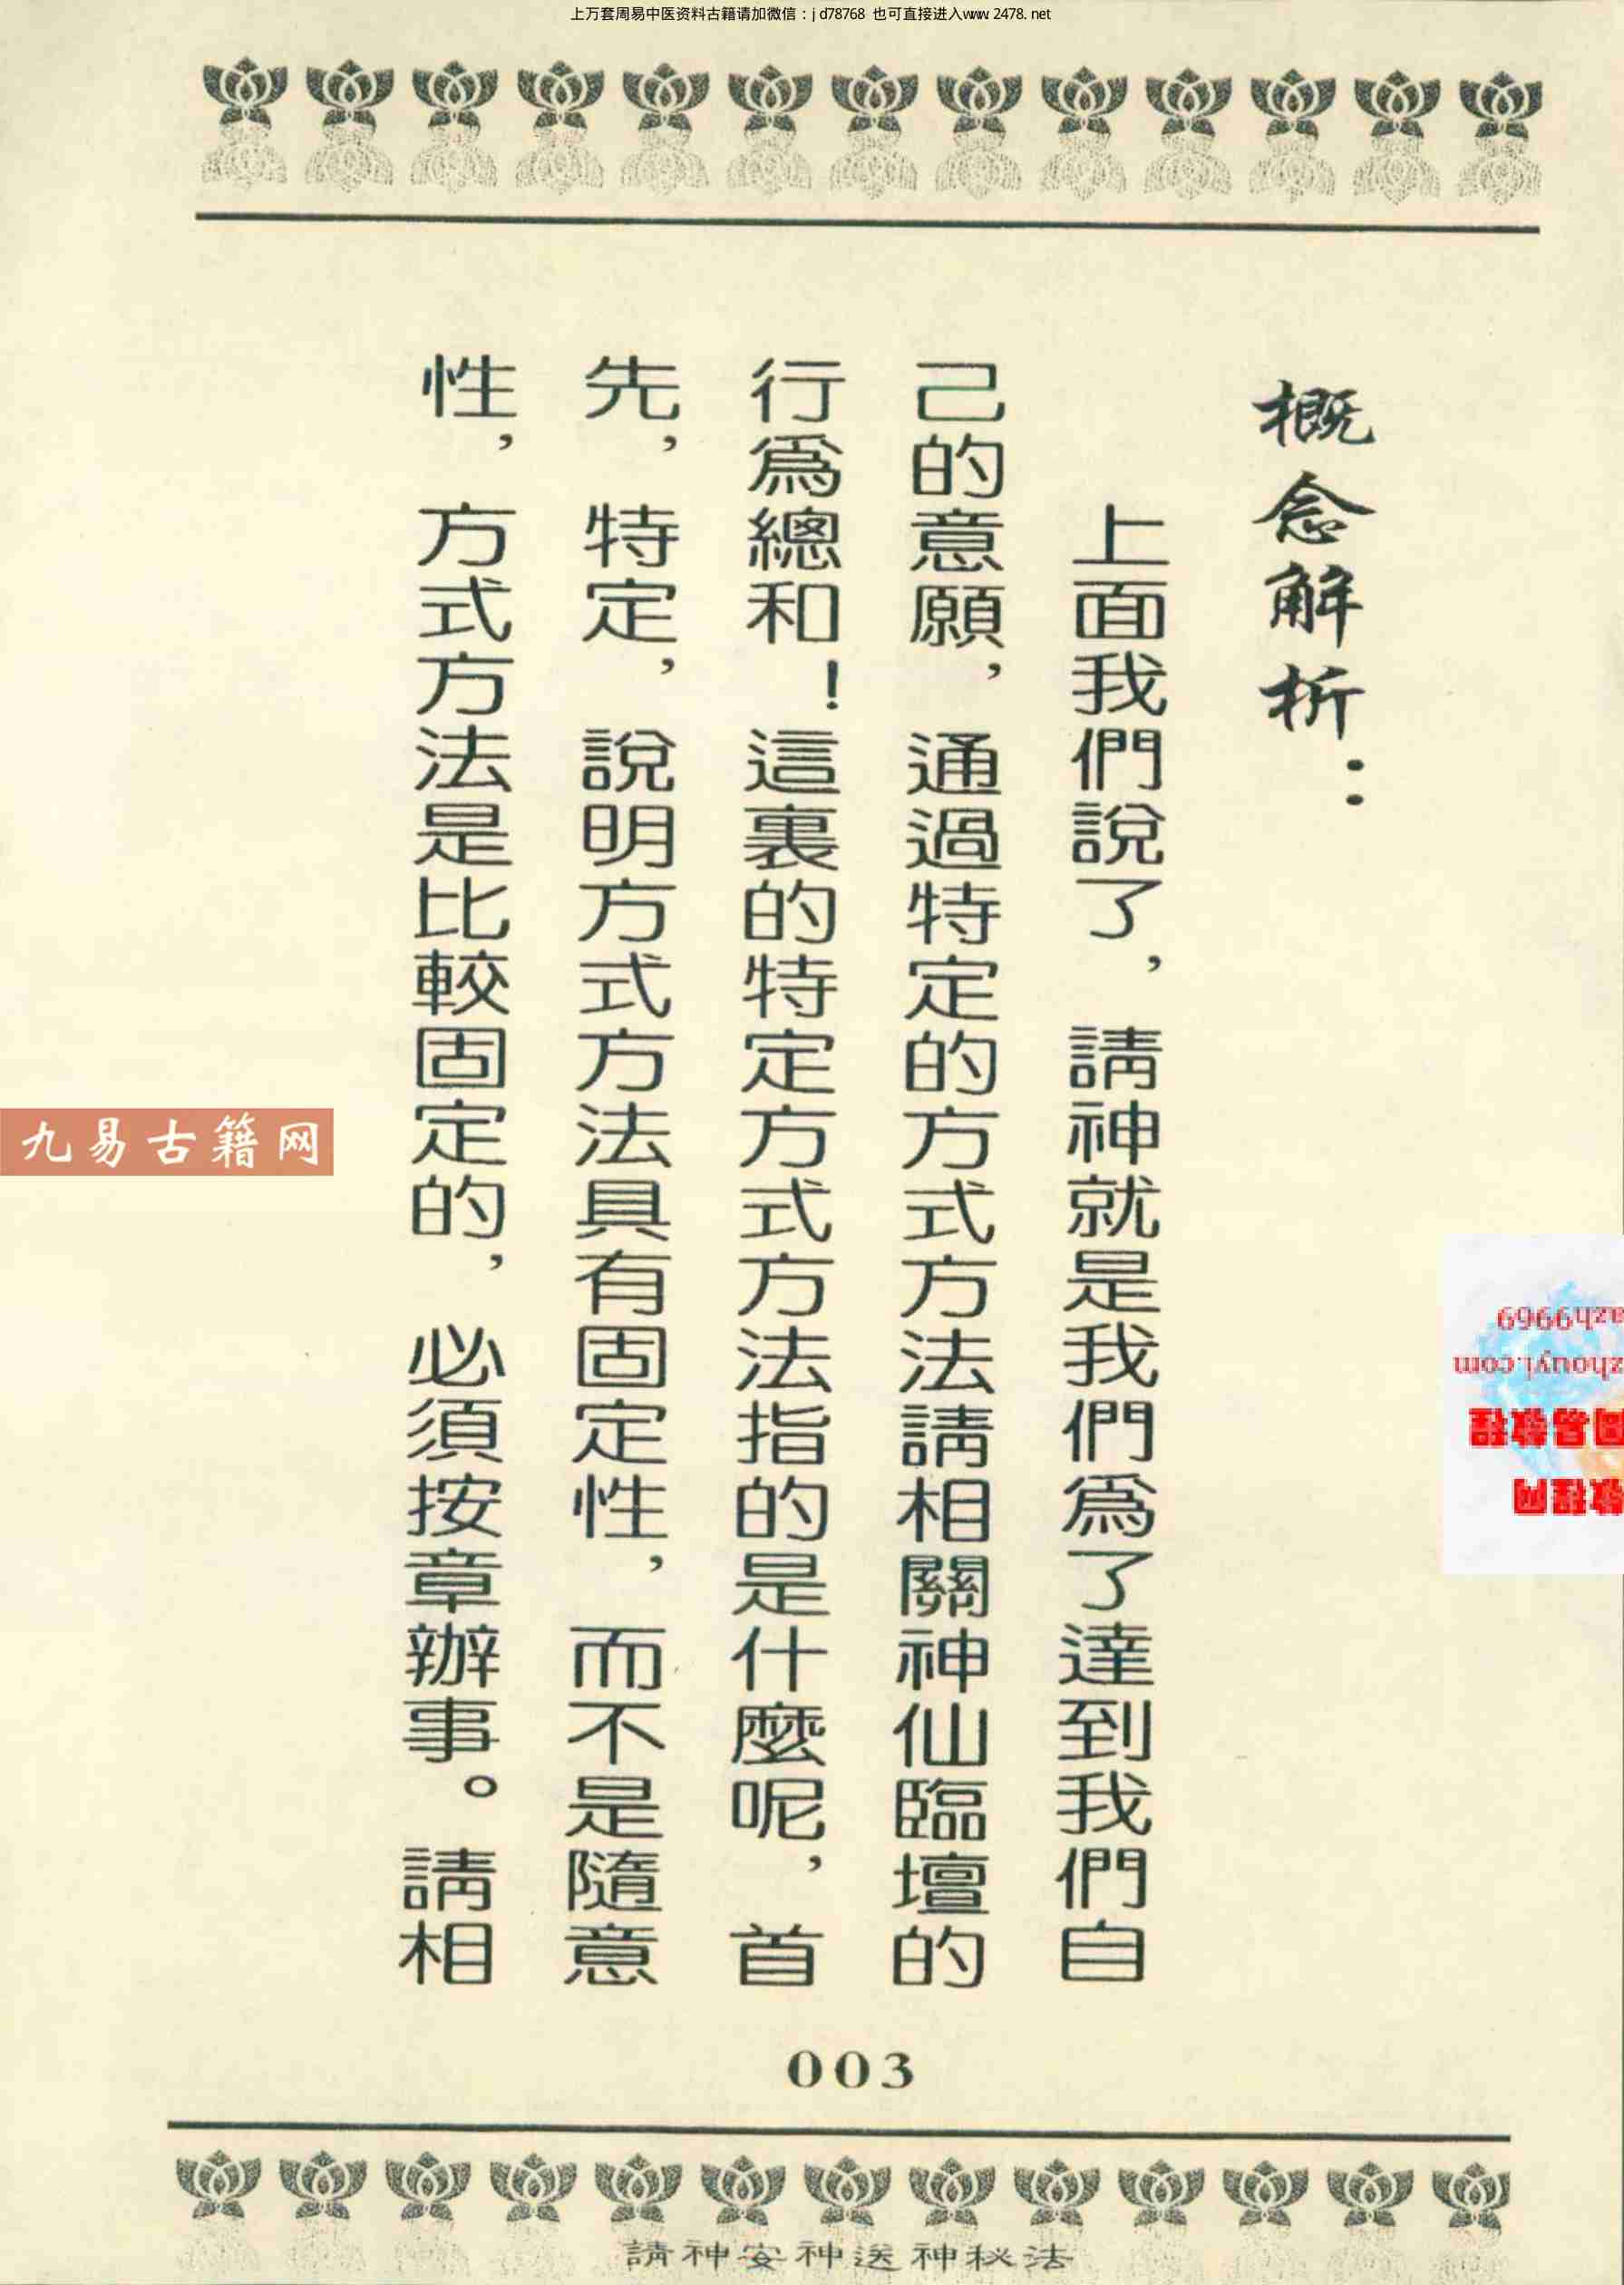 上万套周易中医资料古籍请加微信：jd78768 也可直接进入www.2478.net
概念解析：
上面我們說了，請神就是我們爲了達到我們自
己的意願，通過特定的方式方法請相關神仙臨壇的
行爲總和！這裏的特定方式方法指的是什麼呢，首
先，特定，說明方式方法具有固定性，而不是隨意
性，方式方法是比較固定的，必須按章辦事。請相
九易古籍网
azh9969
zhouyi.com
周易教程
教程网
003
請神安神送神秘法